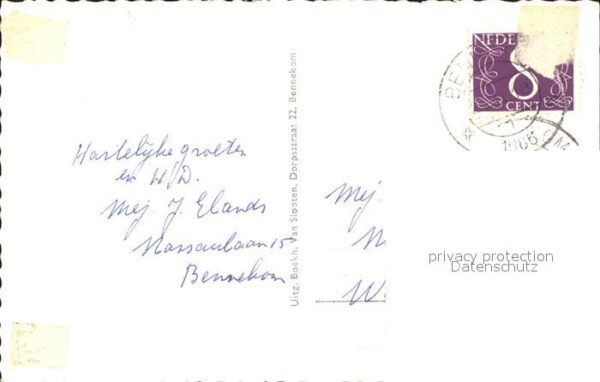 Hartelijke groeten
en H.D.
Mej. J. Elands
Nassaulaan 15
Bennekom
Uitg. Boekh. Van Slooten, Dorpsstraat 22, Bennekom
NEDE
8
CENT
BEN
1966
Mej.
privacy protection
Datenschutz